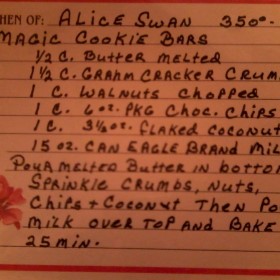 HEN OF: ALICE SWAN 350°-
MAGIC COOKIE BARS
½ C. BUTTER MELTED
1½ C. GRAHM CRACKER CRUM
1 C. WALNUTS CHOPPED
1 C. 6 OZ. PKG CHOC. CHIPS
1 C. 3½ OZ. FLAKED COCONUT
15 OZ. CAN EAGLE BRAND MIL
POUR MELTED BUTTER IN BOTTOM
SPRINKLE CRUMBS, NUTS,
CHIPS + COCONUT THEN PO
MILK OVER TOP AND BAKE
25 MIN.